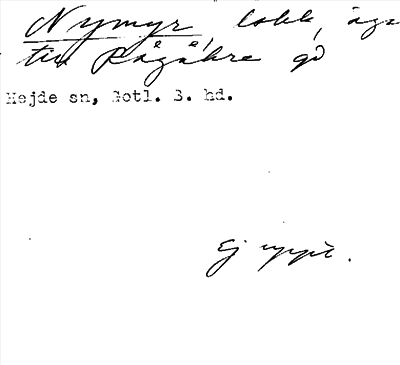 Nymyr, lokk, äga
till Rågåkre gd
Hejde sn, Gotl. 3. hd.
Ej uppt.